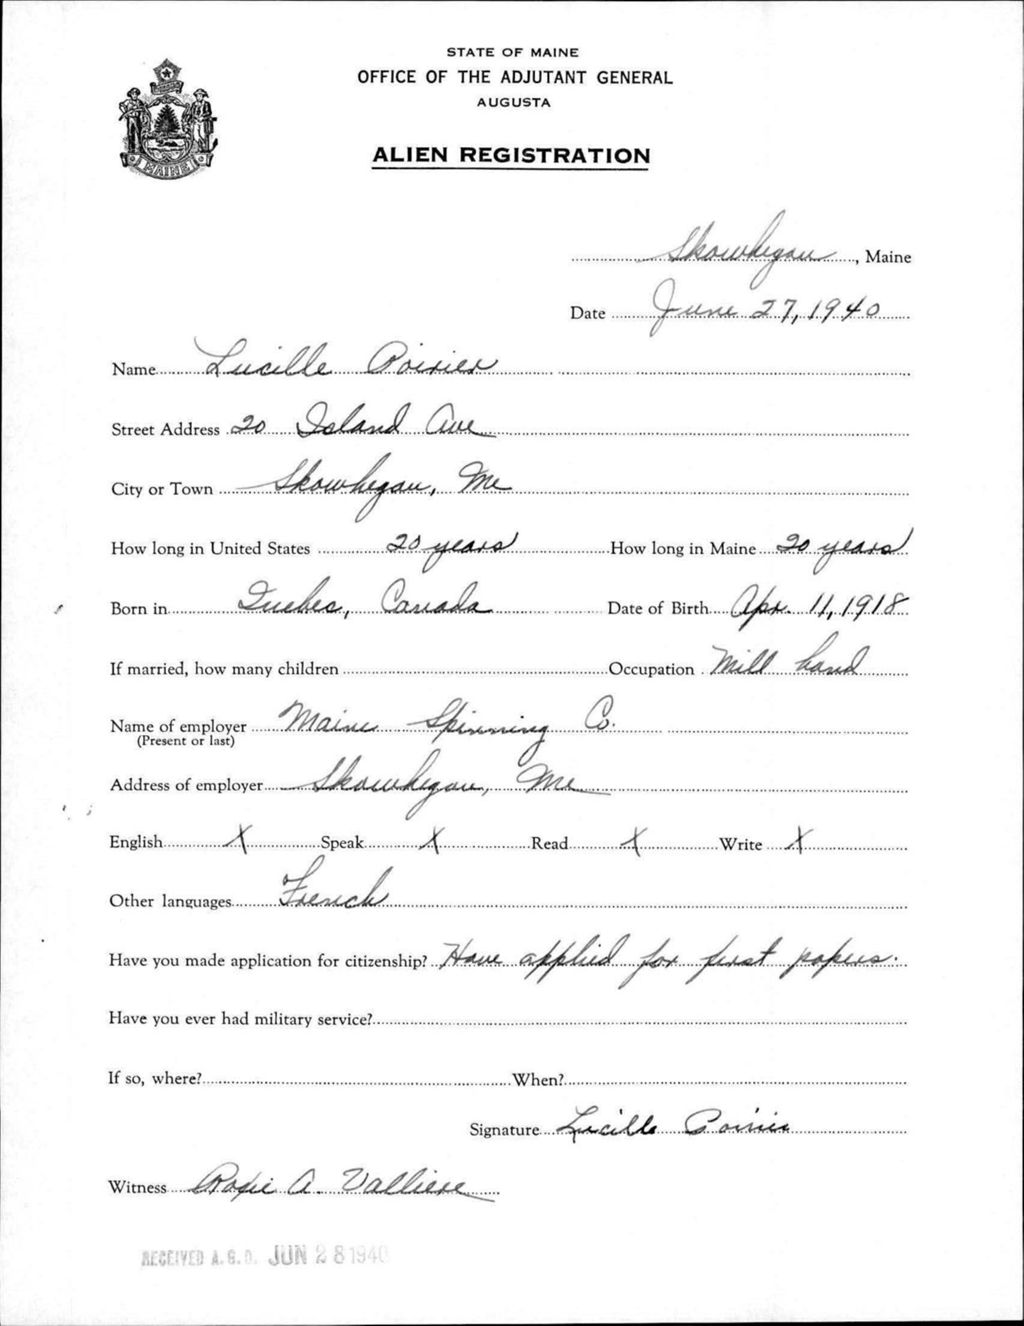 STATE OF MAINE
OFFICE OF THE ADJUTANT GENERAL
AUGUSTA
ALIEN REGISTRATION
MAINE
Skowhegan, Maine
Date June 27, 1940
Name Lucille Poirier
Street Address 20 Island Ave
City or Town Skowhegan, Me
How long in United States 20 years How long in Maine 20 years
Born in Quebec, Canada Date of Birth Apr. 11, 1918
If married, how many children Occupation Mill hand
Name of employer Maine Spinning Co.
(Present or last)
Address of employer Skowhegan, Me
English X Speak X Read X Write X
Other languages French
Have you made application for citizenship? Have applied for first papers.
Have you ever had military service?
If so, where? When?
Signature Lucille Poirier
Witness Roxie A. Valliere
RECEIVED A.G.O. JUN 28 1940